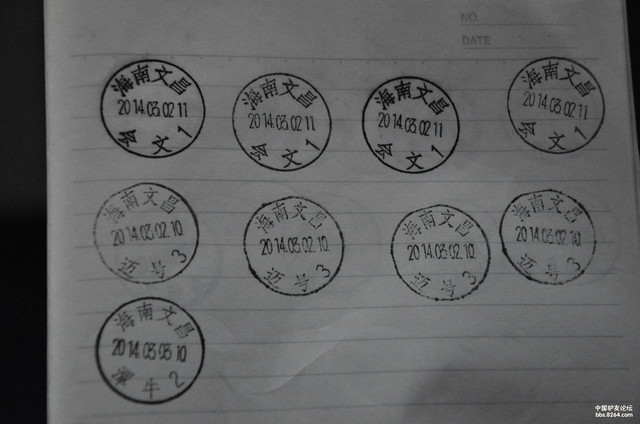 NO.
DATE
海南文昌
2014.03.02 11
会文 1
海南文昌
2014.03.02 11
会文 1
海南文昌
2014.03.02 11
会文 1
海南文昌
2014.03.02 11
会文 1
海南文昌
2014.03.02.10
迈号 3
海南文昌
2014.03.02.10
迈号 3
海南文昌
2014.03.02.10
迈号 3
海南文昌
2014.03.02.10
迈号 3
海南文昌
2014.03.03 10
牛 2
中国驴友论坛
bbs.8264.com